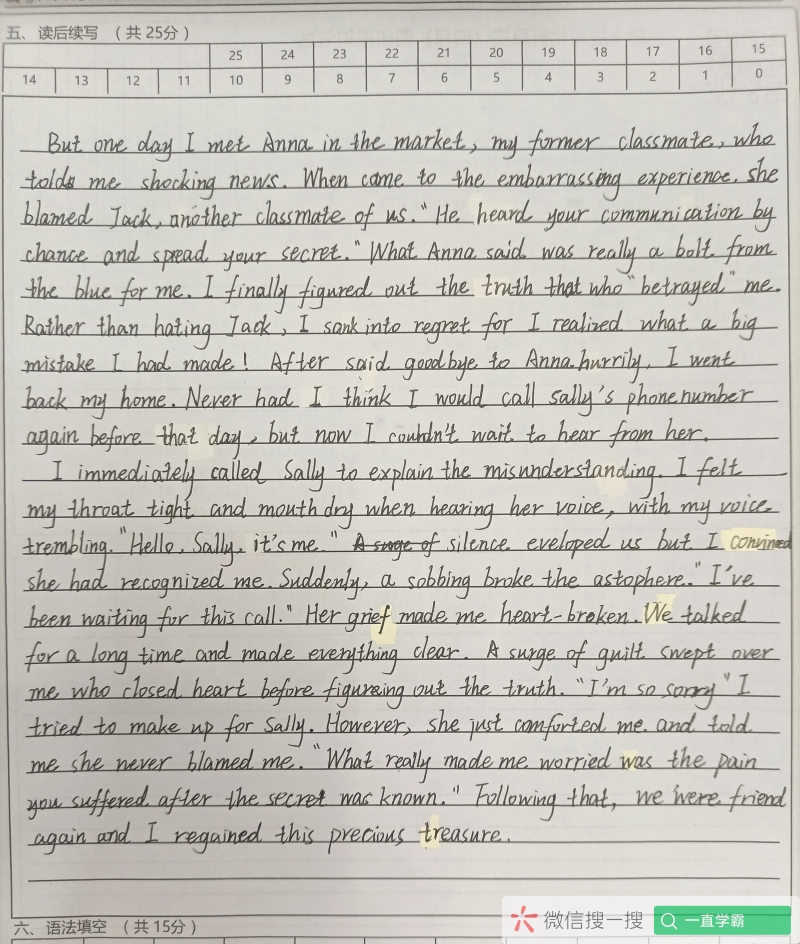 五、读后续写 （共 25分）
25 24 23 22 21 20 19 18 17 16 15
14 13 12 11 10 9 8 7 6 5 4 3 2 1 0
But one day I met Anna in the market, my former classmate, who
told me shocking news. When came to the embarrassing experience, she
blamed Jack, another classmate of us. "He heard your communication by
chance and spread your secret." What Anna said was really a bolt from
the blue for me. I finally figured out the truth that who "betrayed" me.
Rather than hating Jack, I sank into regret for I realized what a big
mistake I had made! After said goodbye to Anna hurrily, I went
back my home. Never had I think I would call Sally's phone number
again before that day, but now I couldn't wait to hear from her.
I immediately called Sally to explain the misunderstanding. I felt
my throat tight and mouth dry when hearing her voice, with my voice
trembling. "Hello, Sally, it's me." A surge of silence eveloped us but I convined
she had recognized me. Suddenly, a sobbing broke the astophere. "I've
been waiting for this call." Her grief made me heart-broken. We talked
for a long time and made everything clear. A surge of guilt swept over
me who closed heart before figuring out the truth. "I'm so sorry" I
tried to make up for Sally. However, she just comforted me and told
me she never blamed me. "What really made me worried was the pain
you suffered after the secret was known." Following that, we were friend
again and I regained this precious treasure.
六、语法填空 （共 15分）
微信搜一搜 一直学霸